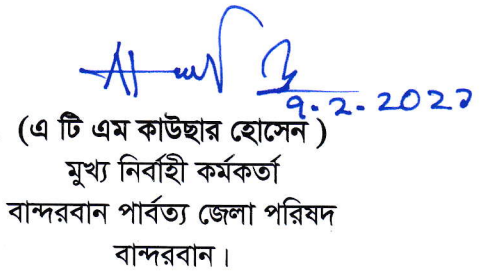 ৭.২.২০২১
(এ টি এম কাউছার হোসেন )
মুখ্য নির্বাহী কর্মকর্তা
বান্দরবান পার্বত্য জেলা পরিষদ
বান্দরবান।